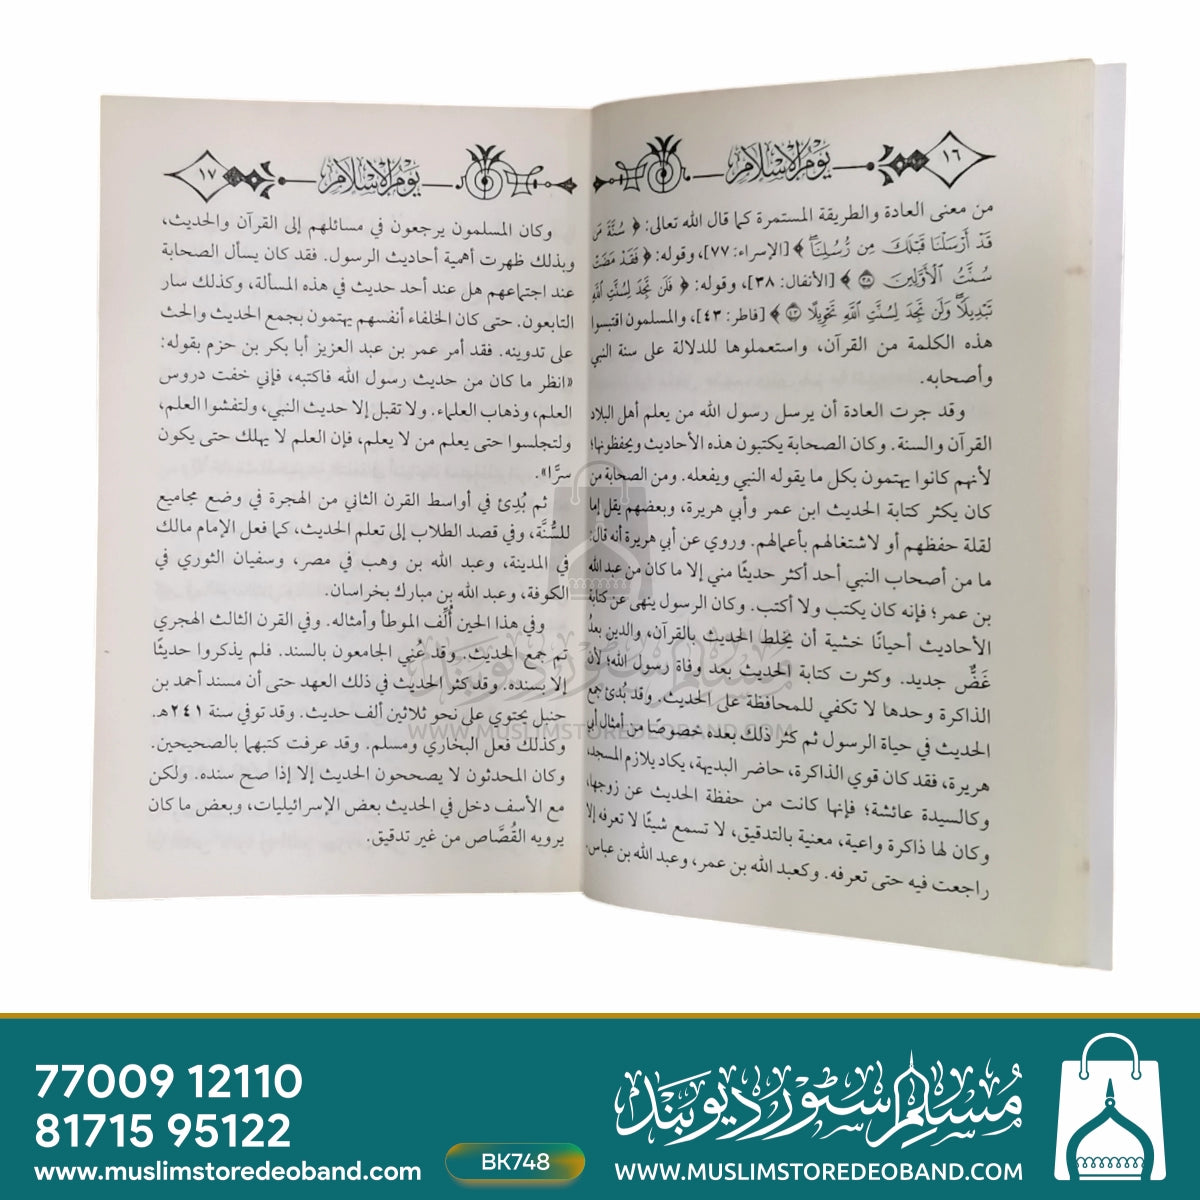 ١٦
يَوْمُ الإِسْلَام
من معنى العادة والطريقة المستمرة كما قال الله تعالى: ﴿ سُنَّةَ مَن
قَدْ أَرْسَلْنَا قَبْلَكَ مِن رُّسُلِنَا ﴾ [الإسراء: ٧٧]، وقوله: ﴿ فَقَدْ مَضَتْ
سُنَّتُ الْأَوَّلِينَ ٣٨ ﴾ [الأنفال: ٣٨]، وقوله: ﴿ فَلَن تَجِدَ لِسُنَّتِ اللَّهِ
تَبْدِيلًا وَلَن تَجِدَ لِسُنَّتِ اللَّهِ تَحْوِيلًا ٤٣ ﴾ [فاطر: ٤٣]، والمسلمون اقتبسوا
هذه الكلمة من القرآن، واستعملوها للدلالة على سنة النبي
وأصحابه.
وقد جرت العادة أن يرسل رسول الله من يعلم أهل البلاد
القرآن والسنة. وكان الصحابة يكتبون هذه الأحاديث ويحفظونها؛
لأنهم كانوا يهتمون بكل ما يقوله النبي ويفعله. ومن الصحابة من
كان يكثر كتابة الحديث ابن عمر وأبي هريرة، وبعضهم يقل إما
لقلة حفظهم أو لاشتغالهم بأعمالهم. وروي عن أبي هريرة أنه قال:
ما من أصحاب النبي أحد أكثر حديثًا مني إلا ما كان من عبد الله
بن عمر؛ فإنه كان يكتب ولا أكتب. وكان الرسول ينهى عن كتابة
الأحاديث أحيانًا خشية أن يختلط الحديث بالقرآن، والدين بعدُ
غَضٌّ جديد. وكثرت كتابة الحديث بعد وفاة رسول الله؛ لأن
الذاكرة وحدها لا تكفي للمحافظة على الحديث. وقد بُدئ جمع
الحديث في حياة الرسول ثم كثر ذلك بعده خصوصًا من أمثال أبي
هريرة، فقد كان قوي الذاكرة، حاضر البديهة، يكاد يلازم المسجد،
وكالسيدة عائشة؛ فإنها كانت من حفظة الحديث عن زوجها،
وكان لها ذاكرة واعية، معنية بالتدقيق، لا تسمع شيئًا لا تعرفه إلا
راجعت فيه حتى تعرفه. وكعبد الله بن عمر، وعبد الله بن عباس.
١٧
يَوْمُ الإِسْلَام
وكان المسلمون يرجعون في مسائلهم إلى القرآن والحديث،
وبذلك ظهرت أهمية أحاديث الرسول. فقد كان يسأل الصحابة
عند اجتماعهم هل عند أحد حديث في هذه المسألة، وكذلك سار
التابعون. حتى كان الخلفاء أنفسهم يهتمون بجمع الحديث والحث
على تدوينه. فقد أمر عمر بن عبد العزيز أبا بكر بن حزم بقوله:
«انظر ما كان من حديث رسول الله فاكتبه، فإني خفت دروس
العلم، وذهاب العلماء. ولا تقبل إلا حديث النبي، ولتفشوا العلم،
ولتجلسوا حتى يعلم من لا يعلم، فإن العلم لا يهلك حتى يكون
سرًّا».
ثم بُدئ في أواسط القرن الثاني من الهجرة في وضع مجاميع
للسُّنَّة، وفي قصد الطلاب إلى تعلم الحديث، كما فعل الإمام مالك
في المدينة، وعبد الله بن وهب في مصر، وسفيان الثوري في
الكوفة، وعبد الله بن مبارك بخراسان.
وفي هذا الحين أُلِّف الموطأ وأمثاله. وفي القرن الثالث الهجري
تم جمع الحديث. وقد عُني الجامعون بالسند. فلم يذكروا حديثًا
إلا بسنده. وقد كثر الحديث في ذلك العهد حتى أن مسند أحمد بن
حنبل يحتوي على نحو ثلاثين ألف حديث. وقد توفي سنة ٢٤١هـ.
وكذلك فعل البخاري ومسلم. وقد عرفت كتبهما بالصحيحين.
وكان المحدثون لا يصححون الحديث إلا إذا صح سنده. ولكن
مع الأسف دخل في الحديث بعض الإسرائيليات، وبعض ما كان
يرويه القُصَّاص من غير تدقيق.
مسلم سٹور دیوبند
WWW.MUSLIMSTOREDEOBAND.COM
77009 12110
81715 95122
www.muslimstoredeoband.com
BK748
مسلم سٹور دیوبند
WWW.MUSLIMSTOREDEOBAND.COM